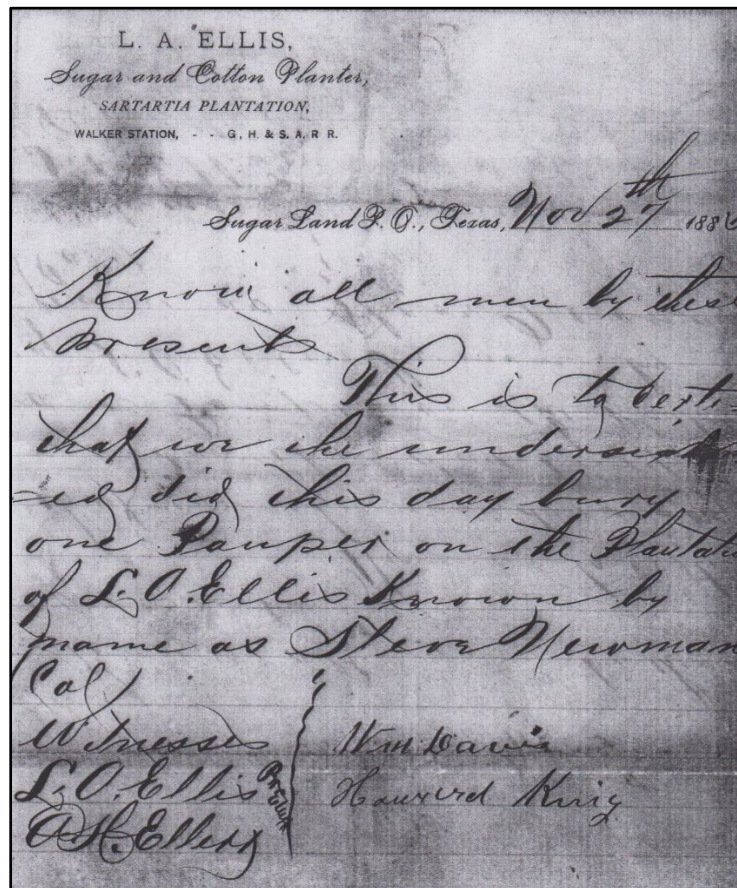 L. A. ELLIS,
Sugar and Cotton Planter,
SARTARTIA PLANTATION,
WALKER STATION, - - G, H. & S. A. R R.
Sugar Land P. O., Texas, Nov 27th 188
Know all men by these
presents
This is to Certi-
that we the undersign
=ed did this day bury
one Pauper on the Plantati
of L. A. Ellis Known by
name as Steve Newman
(Col)
Witnesses
Wm Davis
L. A. Ellis
Howard King